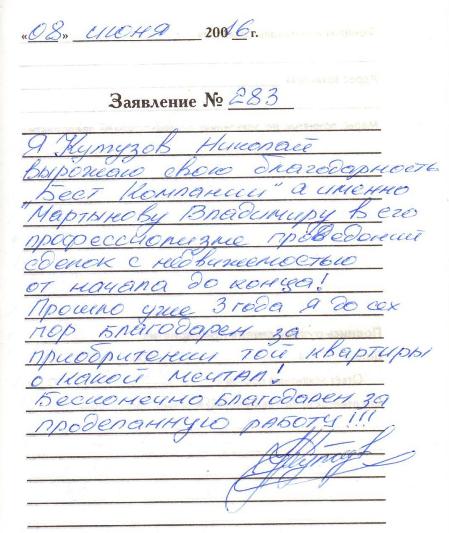 «08» июня 20016 г.
Заявление № 283
Я Кутузов Николай
вырожаю свою благодарность
„Бест Компании" а именно
"Мартынову Владимиру в его
профессиолизме проведоний
сделок с недвижемостью
от начала до конца!
Прошло уже 3 года я до сех
пор благодарен за
приобритении той квартиры
о какой мечтал!
Бесконечно благодарен за
проделанную работу!!!